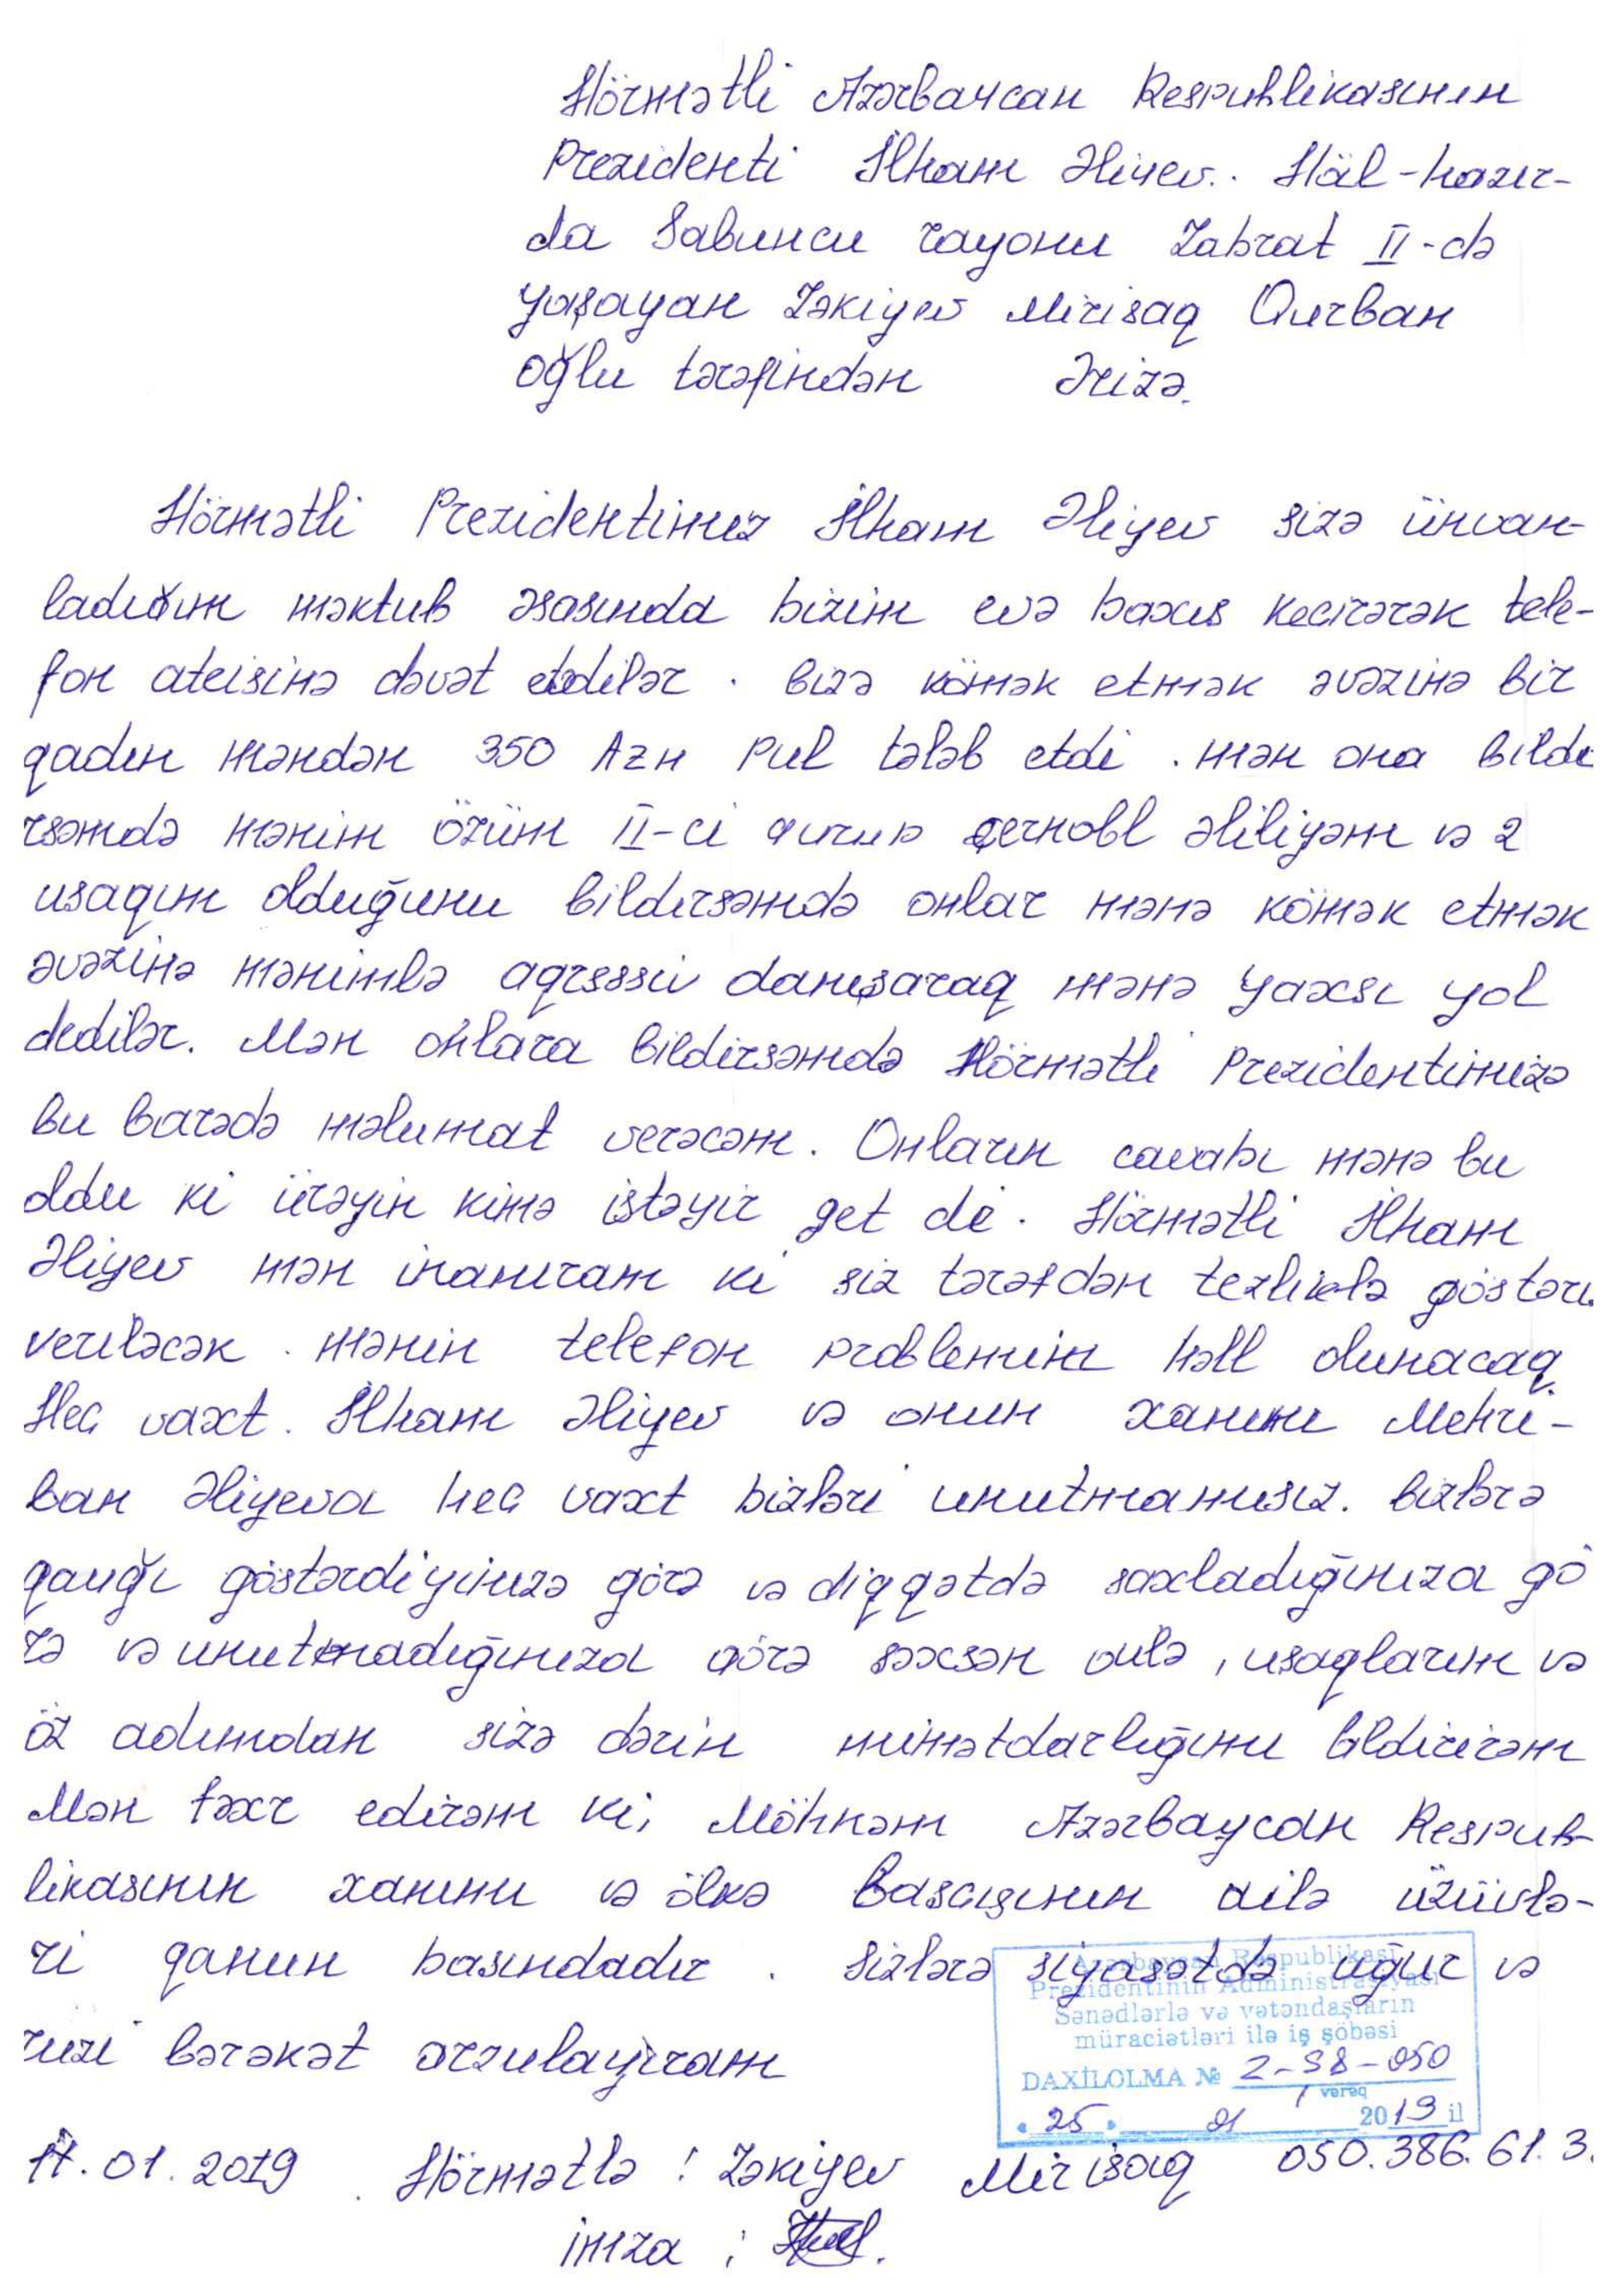 Hörmətli Azərbaycan Respublikasının
Prezidenti İlham Əliyev. Häl-hazır-
da Sabuncu rayonu Zabrat II-də
yaşayan Zəkiyev Mirisaq Qurban
oğlu tərəfindən Ərizə.
Hörmətli Prezidentimiz İlham Əliyev sizə ünvan-
ladığım məktub əsasında bizim evə baxıs kecirərək tele-
fon ateisinə dəvət etdilər. Bizə kömək etmək əvəzinə bir
qadın məndən 350 Azn pul tələb etdi. mən ona bildi
rsəmdə mənim özüm II-ci qurup çernobl əliliyəm və 2
usaqım olduğunu bildirsəmdə onlar mənə kömək etmək
əvəzinə mənimlə aqressiv danışaraq mənə yaxsı yol
dedilər. Mən onlara bildirsəmdə Hörmətli Prezidentimizə
bu barədə məlumat verəcəm. Onların cavabı mənə bu
oldu ki ürəyin kimə istəyir get de. Hörmətli İlham
Əliyev mən inanıram ki siz tərəfdən tezliklə göstəri
veriləcək. mənin telefon problemim həll olunacaq
Hec vaxt. İlham Əliyev və onun xanımı Mehri-
ban Əliyeva hec vaxt bizləri unutmamısız. bizlərə
qayğı göstərdiyinizə görə və diqqətdə saxladığınıza gö
rə və unutmadığınıza görə səxsən ailə, usaqlarım və
öz adımdan sizə dərin minətdarlığımı bildirirəm
Mən fəxr edirəm ki, Möhkəm Azərbaycan Respub-
likasının xanımı və ölkə Bascısının ailə üzüvlə-
ri qanun basındadır. Sizlərə siyasətdə uğur və
ruzi bərəkət arzulayıram
Azərbaycan Respublikası
Prezidentinin Administrasiyası
Sənədlərlə və vətəndaşların
müraciətləri ilə iş şöbəsi
DAXİLOLMA № 2-38-050
1 vərəq
« 25 » 01 2019 il
17.01.2019 Hörmətlə: Zəkiyev Mirisaq 050.386.61.3.
imza: